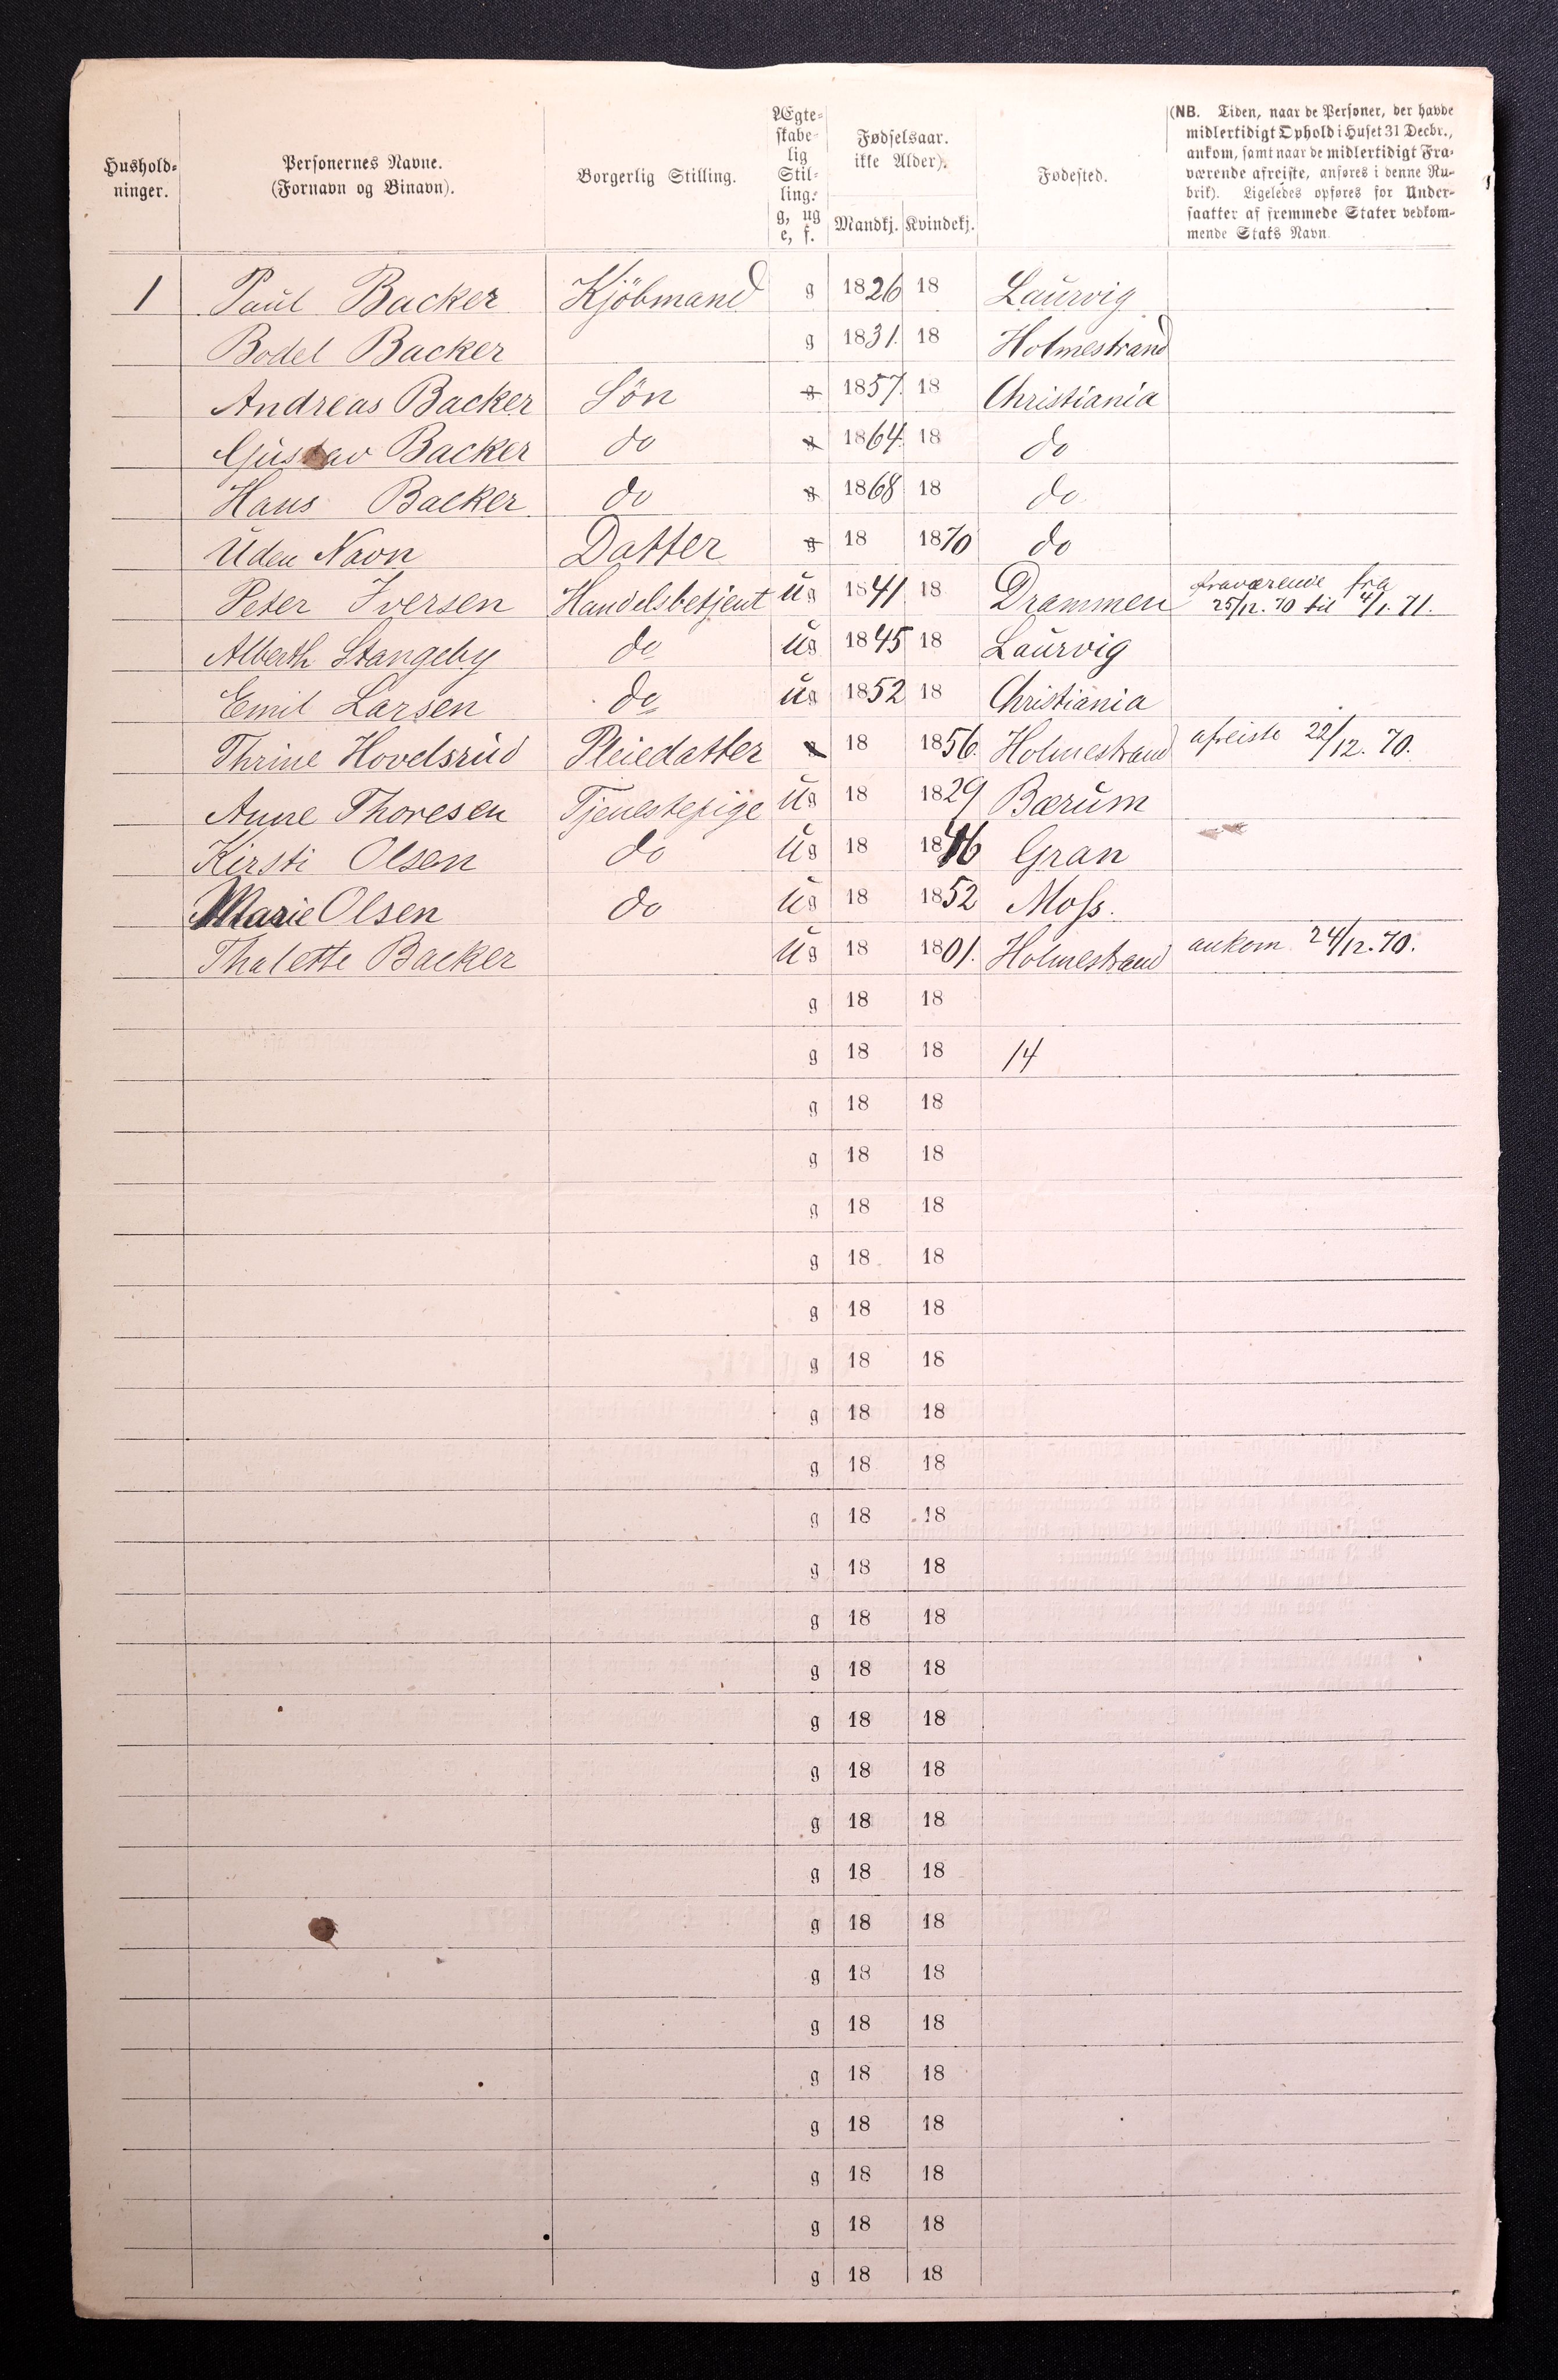 Hushold-
ninger.
Personernes Navne.
(Fornavn og Binavn).
Borgerlig Stilling.
Ægte-
skabe-
lig
Stil-
ling.
g, ug
e, f.
Fødselsaar.
ikke Alder).
Mandkj. Kvindekj.
Fødested.
(NB. Tiden, naar de Personer, der havde
midlertidigt Ophold i Huset 31 Decbr.,
ankom, samt naar de midlertidigt Fra-
værende afreiste, anføres i denne Ru-
brik). Ligeledes opføres for Under-
saatter af fremmede Stater vedkom-
mende Stats Navn.
1 Paul Backer Kjöbmand g 1826 18 Laurvig
Bodel Backer g 1831. 18 Holmestrand
Andreas Backer Sön g 1857. 18 Christiania
Gustav Backer do g 1864. 18 do
Hans Backer do g 1868 18 do
Uden Navn Datter g 18 1870 do
Peter Iversen Handelsbetjent ug 1841 18 Drammen fraværende fra
25/12. 70 til 4/1. 71.
Alberth Stangeby do ug 1845 18 Laurvig
Emil Larsen do ug 1852 18 Christiania
Thrine Hovelsrud Pleiedatter 18 1856. Holmestrand afreiste 22/12. 70.
Anne Thoresen Tjenestepige ug 18 1829 Bærum
Kirsti Olsen do ug 18 1846 Gran
Marie Olsen do ug 18 1852 Moss.
Thalette Backer ug 18 1801. Holmestrand ankom 24/12. 70.
g 18 18
g 18 18 14
g 18 18
g 18 18
g 18 18
g 18 18
g 18 18
g 18 18
g 18 18
g 18 18
g 18 18
g 18 18
g 18 18
g 18 18
g 18 18
g 18 18
g 18 18
g 18 18
g 18 18
g 18 18
g 18 18
g 18 18
g 18 18
g 18 18
g 18 18
g 18 18